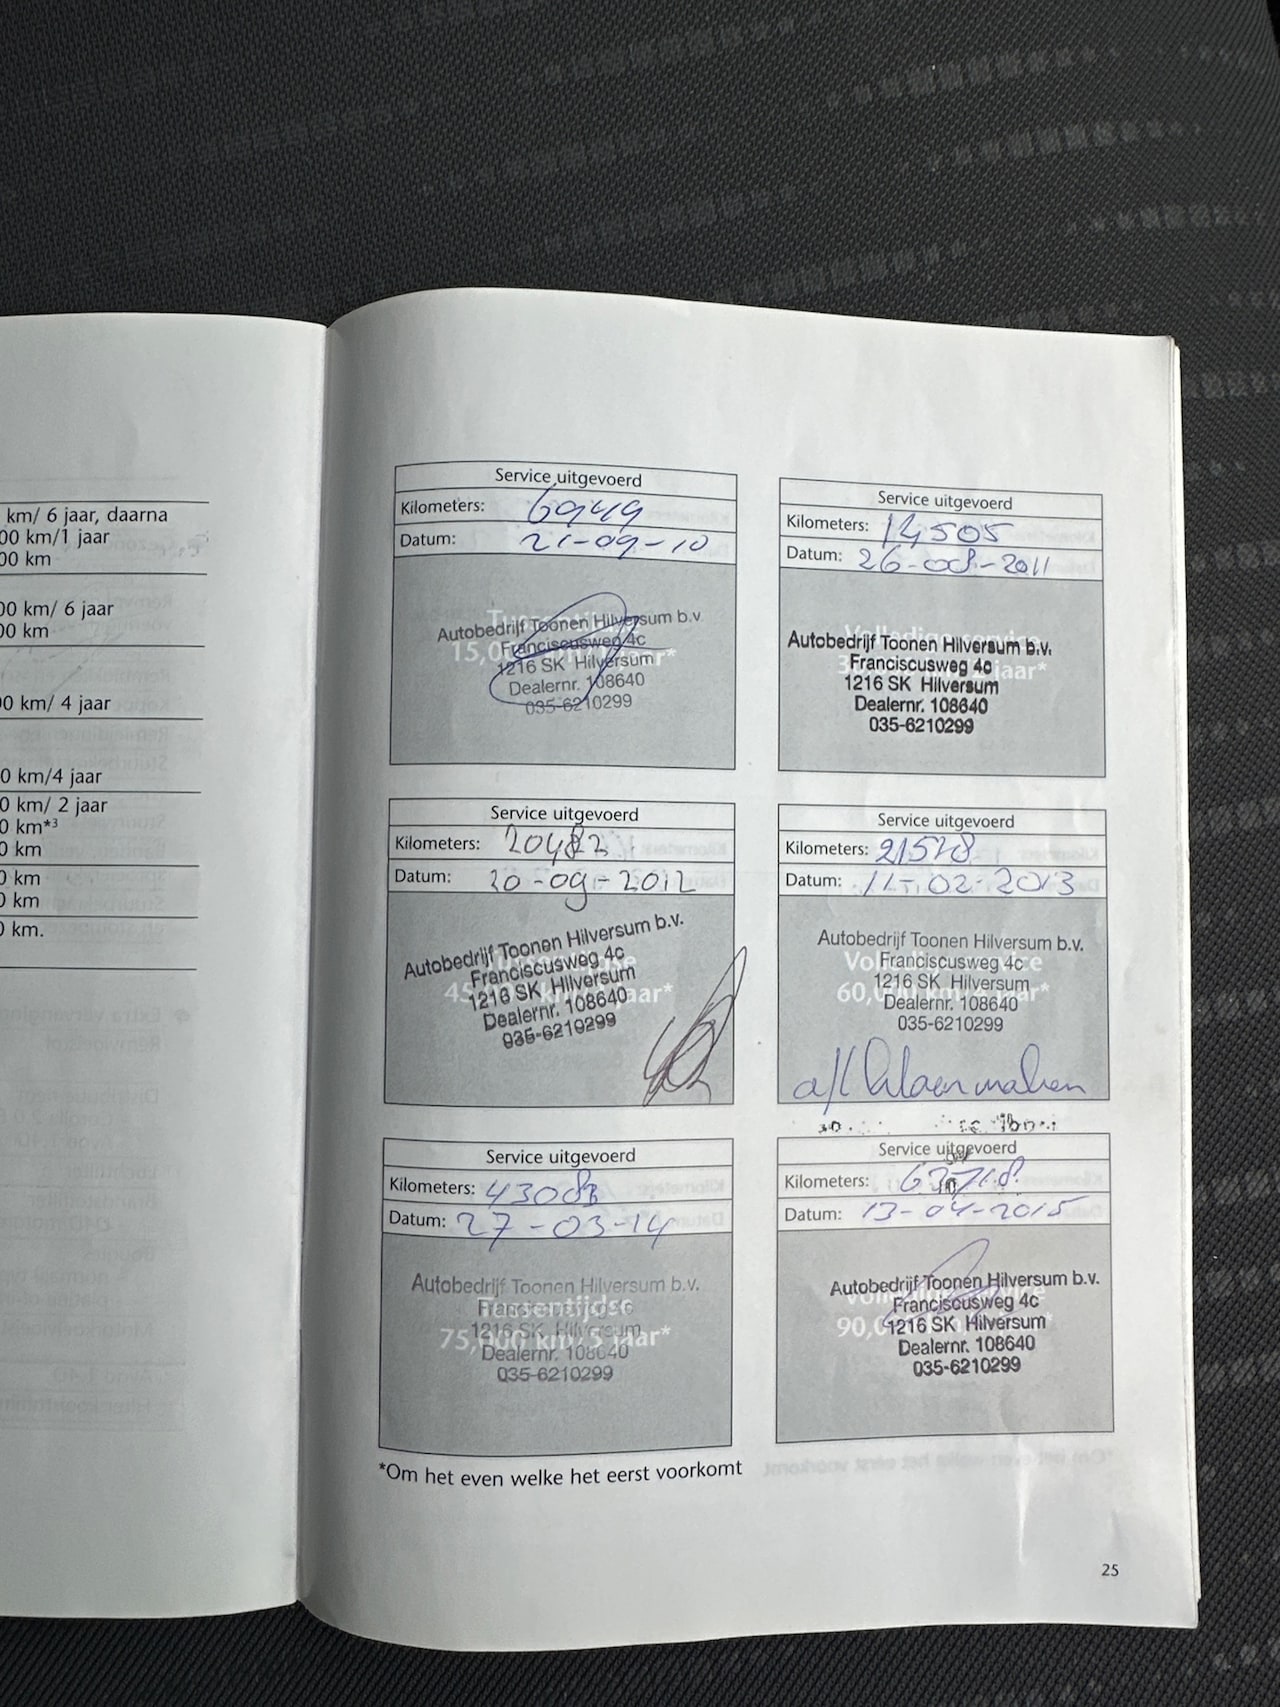 km/ 6 jaar, daarna
00 km/1 jaar
00 km
00 km/ 6 jaar
00 km
00 km/ 4 jaar
0 km/4 jaar
0 km/ 2 jaar
0 km*³
0 km
0 km
0 km
0 km.
Service uitgevoerd
Kilometers: 6949
Datum: 21-09-10
Autobedrijf Toonen Hilversum b.v.
Franciscusweg 4c
15,0 jaar*
1216 SK Hilversum
Dealernr. 108640
035-6210299
Service uitgevoerd
Kilometers: 14505
Datum: 26-08-2011
Volledige service
Autobedrijf Toonen Hilversum b.v.
Franciscusweg 4c
jaar*
1216 SK Hilversum
Dealernr. 108640
035-6210299
Service uitgevoerd
Kilometers: 20482
Datum: 20-09-2012
Autobedrijf Toonen Hilversum b.v.
Franciscusweg 4c
45, km jaar*
1216 SK Hilversum
Dealernr. 108640
035-6210299
Service uitgevoerd
Kilometers: 21528
Datum: 11-02-2013
Autobedrijf Toonen Hilversum b.v.
Franciscusweg 4c
Volledige service
1216 SK Hilversum
60,000 km jaar*
Dealernr. 108640
035-6210299
Service uitgevoerd
Kilometers: 43083
Datum: 27-03-14
Autobedrijf Toonen Hilversum b.v.
Franciscusweg 4c
Tussentijdse
1216 SK Hilversum
75,000 km/ 5 jaar*
Dealernr. 108640
035-6210299
Service uitgevoerd
Kilometers: 63718
Datum: 13-04-2015
Autobedrijf Toonen Hilversum b.v.
Volledige service
Franciscusweg 4c
1216 SK Hilversum
90,0
Dealernr. 108640
035-6210299
*Om het even welke het eerst voorkomt
25